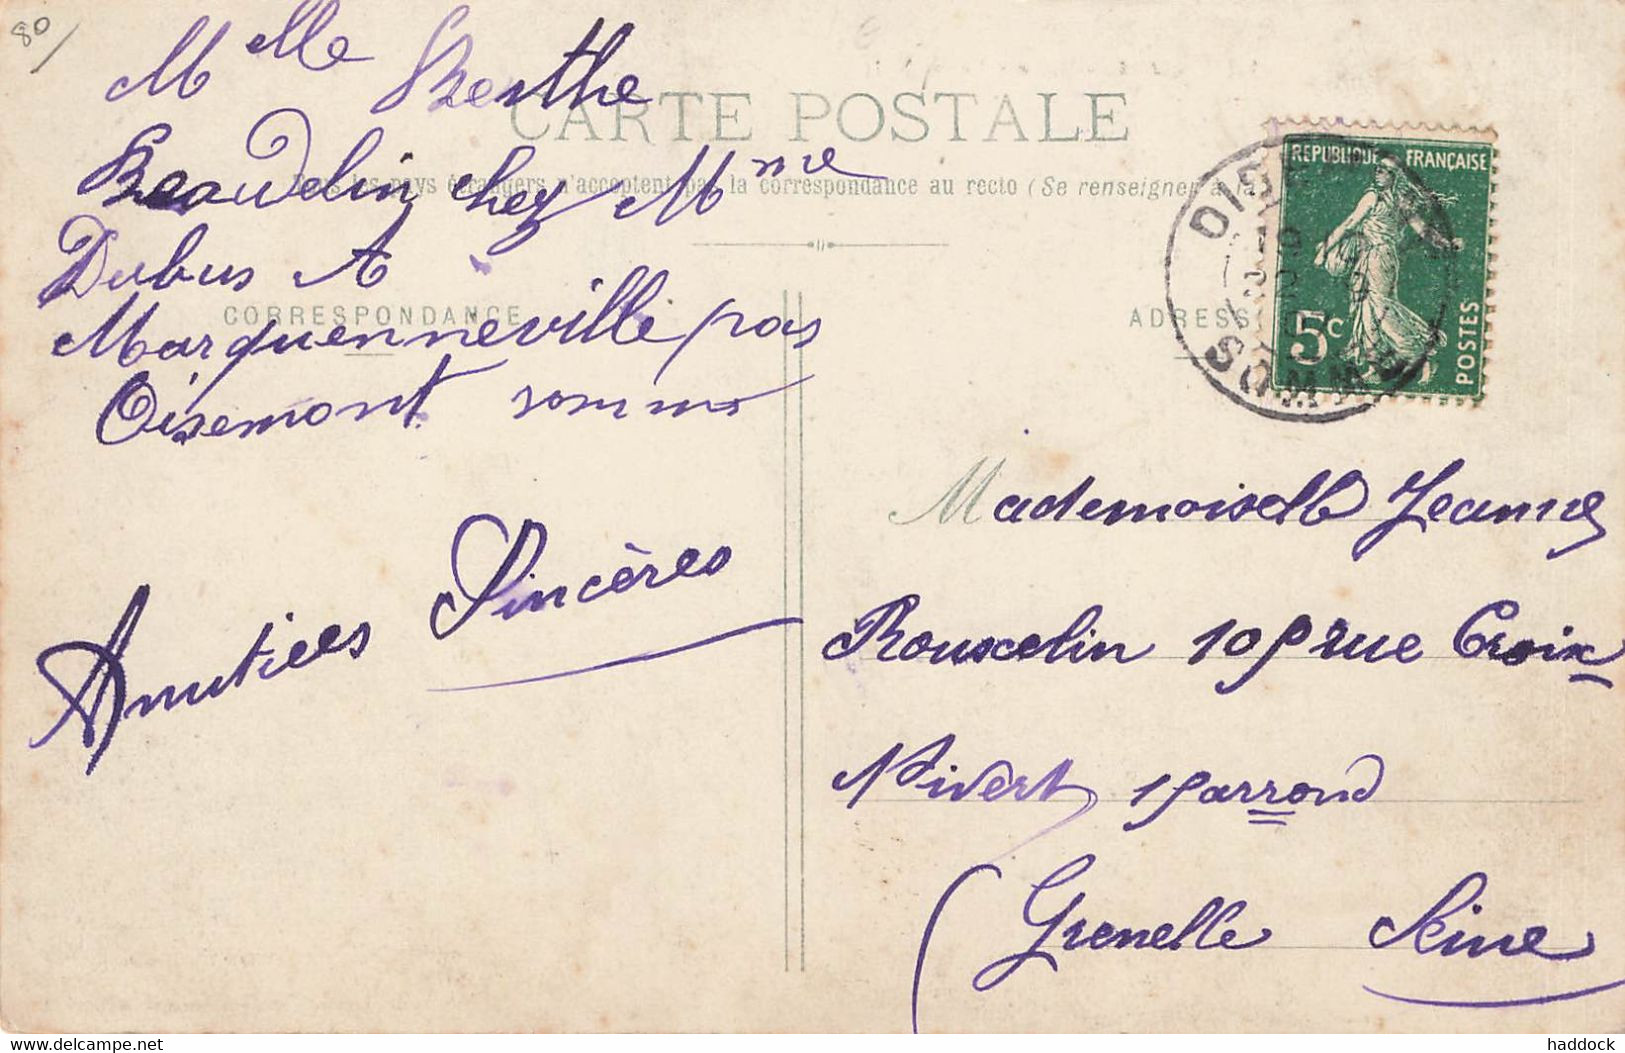 80/
Mlle Berthe
CARTE POSTALE
Beaudelin chez Mme
Tous les pays étrangers n'acceptent pas la correspondance au recto (Se renseigner à la
Dubus A
CORRESPONDANCE
Marquenneville pas
Oisemont somme
Amitiées Sincères
RÉPUBLIQUE FRANÇAISE
5c
POSTES
OISEMONT
SOMME
ADRESSE
Mademoiselle Jeanne
Rouxelin 109 rue Croix
Nivert 15 arrond
(Grenelle Seine
www.delcampe.net
haddock